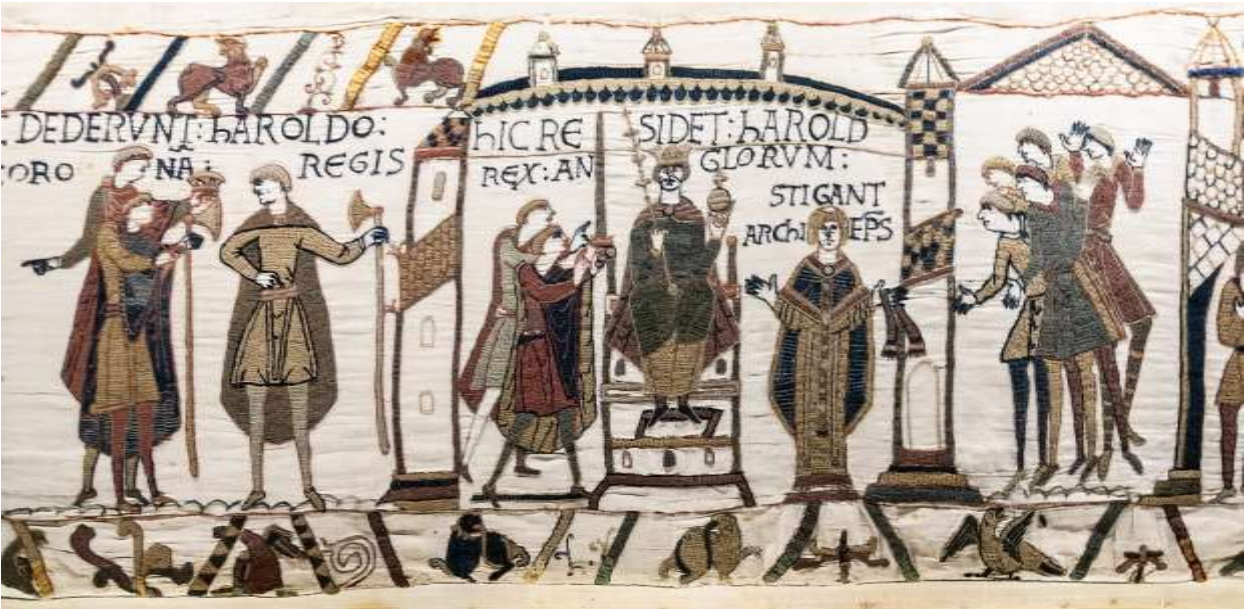 DEDERVNT: hAROLDO:
ORO NA: REGIS
hIC RE SIDET: hAROLD
REX: AN GLORVM:
STIGANT
ARChI EP̅S